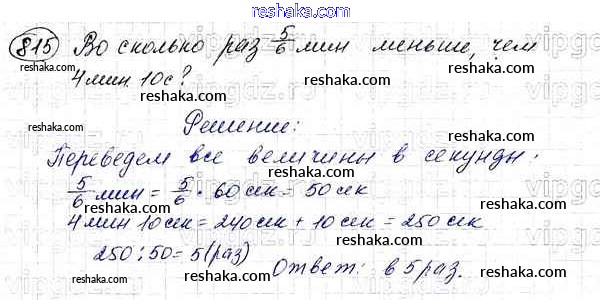 815 Во сколько раз 5/6 мин меньше, чем
4 мин 10с?
Решение:
Переведем все величины в секунды.
5/6 мин = 5/6 · 60 сек = 50 сек
4 мин 10 сек = 240 сек + 10 сек = 250 сек
250 : 50 = 5 (раз)
Ответ: в 5 раз.
reshaka.com
reshaka.com
reshaka.com
reshaka.com
reshaka.com
reshaka.com
reshaka.com
reshaka.com
reshaka.com
reshaka.com
reshaka.com
reshaka.com